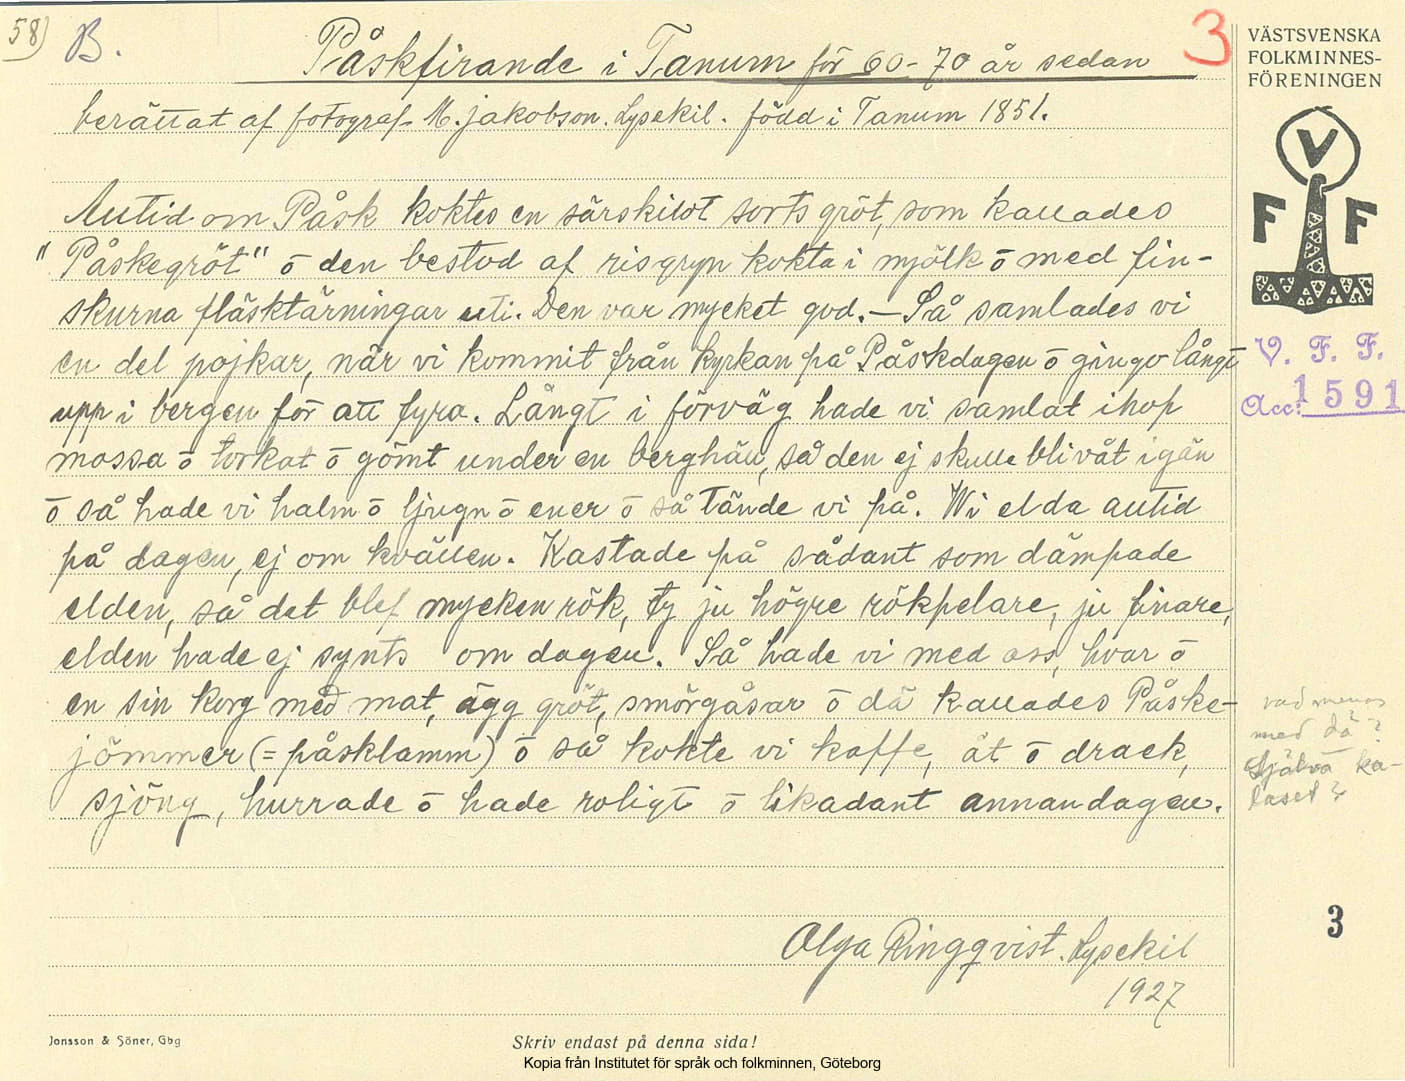 58)
B.
3
Påskfirande i Tanum för 60-70 år sedan
berättat af fotograf M. jakobson. Lysekil. född i Tanum 1851.
Alltid om Påsk koktes en särskildt sorts gröt, som kallades
"Påskegröt" ō den bestod af risgryn kokta i mjölk ō med fin-
skurna fläsktärningar uti. Den var mycket god. — Så samlades vi
en del pojkar, när vi kommit från kyrkan på Påskdagen ō gingo långt
upp i bergen för att fyra. Långt i förväg hade vi samlat ihop
mossa ō torkat ō gömt under en berghäll, så den ej skulle bli våt igän
ō så hade vi halm ō ljugn ō ener ō så tände vi på. Wi elda alltid
på dagen, ej om kvällen. Kastade på sådant som dämpade
elden, så det blef mycken rök, ty ju högre rökpelare, ju finare,
elden hade ej synts om dagen. Så hade vi med oss, hvar ō
en sin korg med mat, ägg gröt, smörgåsar ō dä kallades Påske-
jömmer (= påsklamm) ō så kokte vi kaffe, åt ō drack,
sjöng, hurrade ō hade roligt ō likadant annandagen.
Olga Ringqvist. Lysekil
1927
VÄSTSVENSKA
FOLKMINNES-
FÖRENINGEN
V
F F
V. F. F.
Acc: 1591
vad menas
med dä?
Själva ka-
laset?
3
Jonsson & Söner, Gbg
Skriv endast på denna sida!
Kopia från Institutet för språk och folkminnen, Göteborg